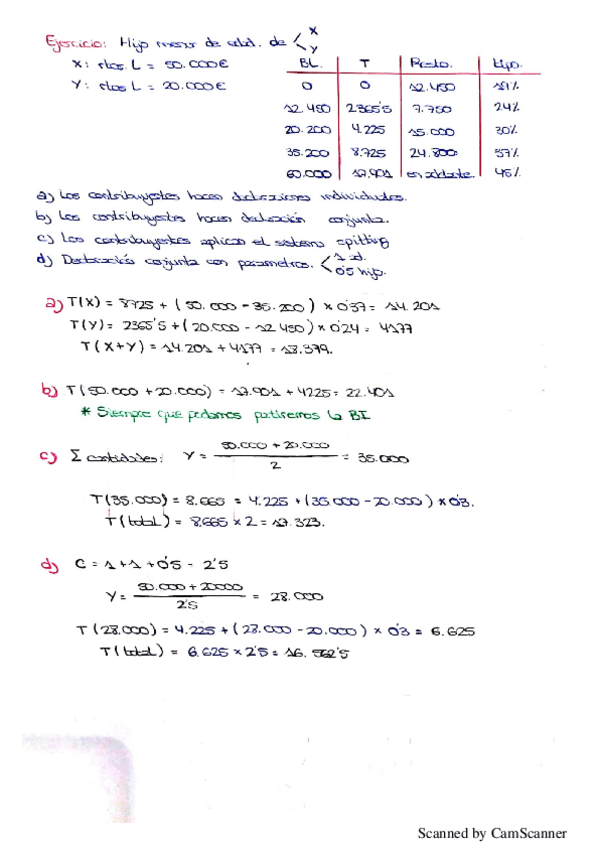 Ejercicio: Hijo menor de edad. de < X
Y
X: rtos L = 50.000€
Y: rtos L = 20.000€
BL. T Resto. tipo.
0 0 12.450 19%
12.450 2365'5 7.750 24%
20.200 4.225 15.000 30%
35.200 8.725 24.800 37%
60.000 17.901 en adelante. 45%
a) Los contribuyentes hacen declaraciones individuales.
b) Los contribuyentes hacen declaración conjunta.
c) Los contribuyentes aplican el sistema splitting
d) Declaración conjunta con parametros. < 1 ad.
0'5 hijo.
a) T(X) = 8725 + (50.000 - 35.200) x 0'37 = 14.201
T(Y) = 2365'5 + (20.000 - 12.450) x 0'24 = 4177
T(X+Y) = 14.201 + 4177 = 18.379.
b) T(50.000 + 20.000) = 17.901 + 4225 = 22.401
* Siempre que podamos partiremos la BI
c) Σ cantidades: Y = 50.000 + 20.000 / 2 = 35.000
T(35.000) = 8.665 = 4.225 + (35.000 - 20.000) x 0'3.
T(total) = 8.665 x 2 = 17.323.
d) C = 1 + 1 + 0'5 - 2'5
Y = 50.000 + 20000 / 2'5 = 28.000
T(28.000) = 4.225 + (28.000 - 20.000) x 0'3 = 6.625
T(total) = 6.625 x 2'5 = 16.562'5
Scanned by CamScanner